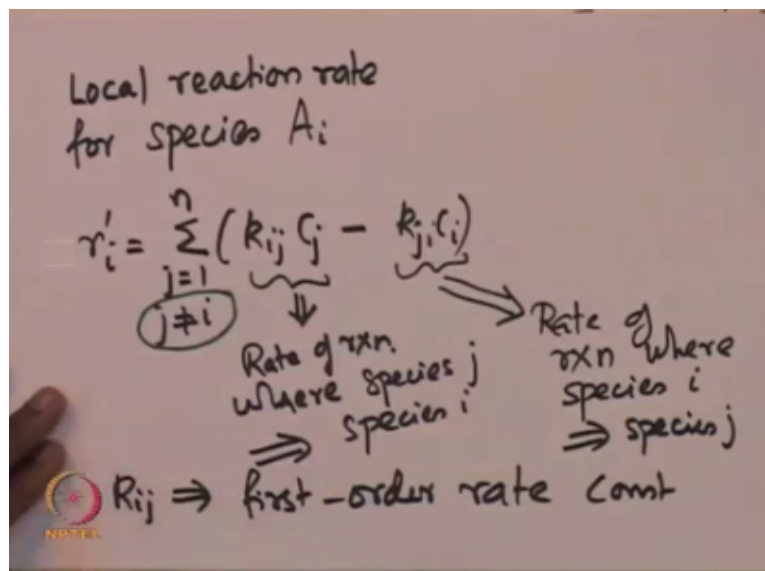 Local reaction rate
for species Ai
r'i = Σ (kij Cj − kji Ci)
n
j=1
j≠i
Rate of rxn.
where species j
⇒ species i
Rate of
rxn where
species i
⇒ species j
kij ⇒ first-order rate const
NPTEL